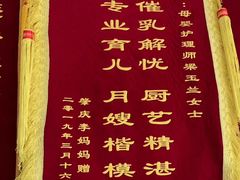 :母婴护理师梁玉兰女士
催乳解忧 厨艺精湛
专业育儿 月嫂楷模
肇庆李妈妈赠
二零一九年三月十六